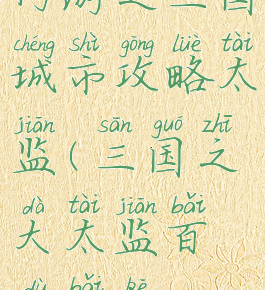 chéng shì gōng lüè tài
城市攻略太
jiān sān guó zhī
监(三国之
dà tài jiān bǎi
大太监百
dù bǎi kē